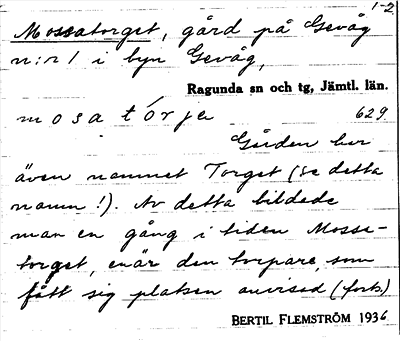 1-2
Mossatorget, gård på Gevåg
n:r 1 i byn Gevåg,
Ragunda sn och tg, Jämtl. län.
mosatórja 629
Gården har
även namnet Torget (se detta
namn!). Av detta bildade
man en gång i tiden Mosse-
torget, enär den torpare, som
fått sig platsen anvisad (forts.)
BERTIL FLEMSTRÖM 1936